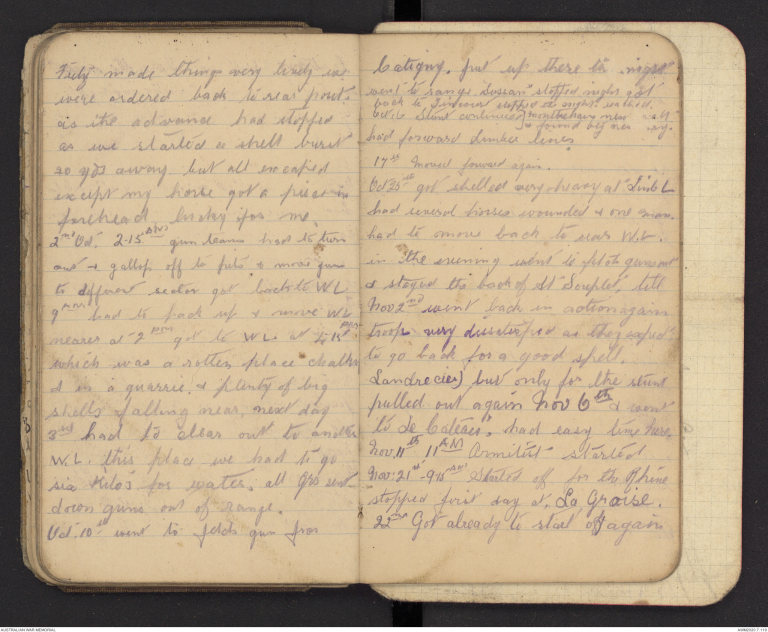 Fritz made things very lively we
were ordered back to rear posit.
as the advance had stopped
as we started a shell burst
20 yds away but all escaped
except my horse got a piece in
forehead lucky for me.
2nd Oct. 2-15 AM gun teams had to turn
out & gallop off to pits & move guns
to different sector got back to W.L.
9 AM had to pack up & move W.L
nearer at 2 PM got to W.L. at 4.15 PM
which was a rotten place chalk
& in a quarrie. & plenty of big
shells falling near, next day
3rd had to clear out to another
W.L. this place we had to go
six Kilos for water. all Gns sent
down guns out of range.
Oct. 10th went to fetch gun from
Catigny. put up there to night
went to range "Lussan" stopped night got
back to stopped a night walked.
Oct 16 Stunt continues
had forward limber lines
17th Moved forward again.
Oct 25th got shelled very heavy at
had several horses wounded & one man.
had to move back to rear W.L.
in the evening went to fetch guns out
& stayed the back of St Souplet, till
Nov 2nd went back in action again
troops very as they expd
to go back for a good spell.
Landrecies) but only for the stunt
pulled out again Nov 6th & went
to Le Cateau". had easy time here.
Nov 11th 11 AM Armitist started
Nov: 21st 9-15 AM Started off for the Rhine
stopped first day at. La Groise.
22nd Got already to start off again
AUSTRALIAN WAR MEMORIAL